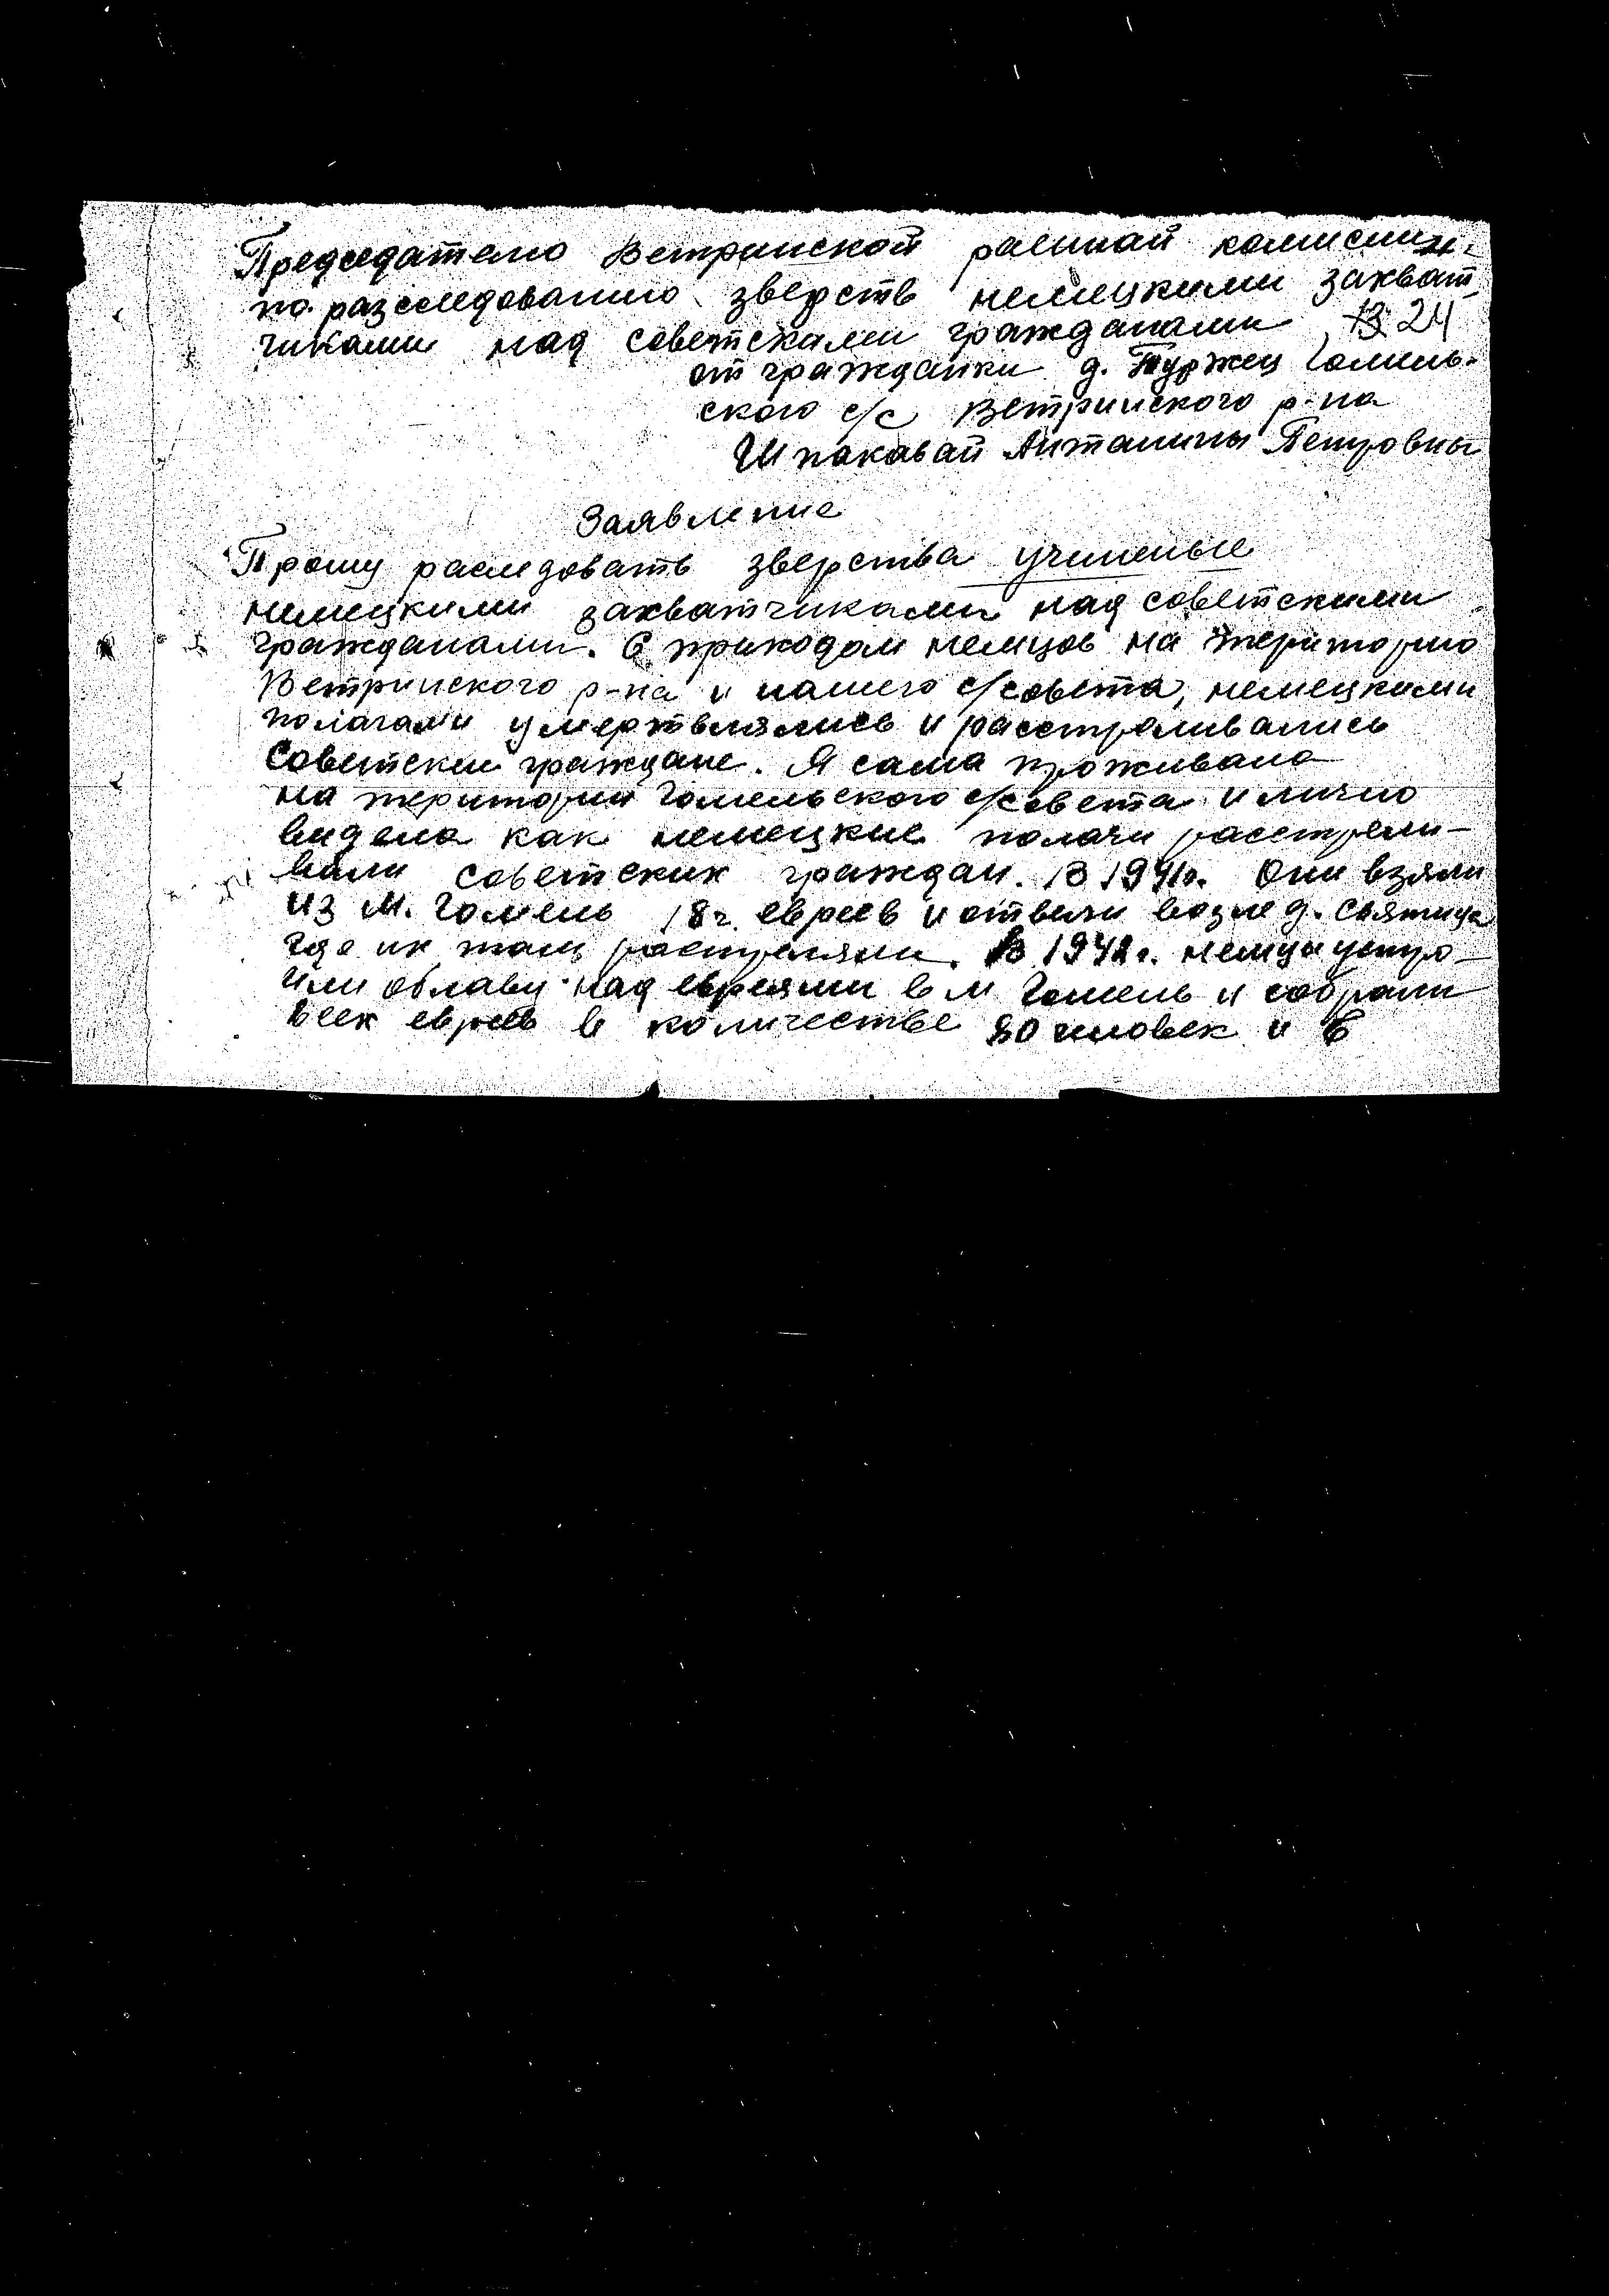 Председателю Ветринской раеннай камисии
по разследованию зверств немецкими захват-
чиками над советскими гражданами 13 24
от гражданки д. Туржец Гомель-
ского с/с Ветринского р-на
Шпакавай Антанины Петровны
Заявление
Прошу раследовать зверства учиненые
немецкими захватчиками над советскими
гражданами. С приходам немцов на територию
Ветринского р-на и нашего с/совета, немецкими
палачами умертвлялись и расстреливались
Советские граждане. Я сама проживала
на територии Гомельского с/совета и лично
видела как немецкие палачи расстрели-
вали советских граждан. В 1941г. Они взяли
из м. Гомель 18 ч. евреев и отвели возле д. Святица
где их там растреляли. В 1942г. немцы устро-
или облаву над евреями в м Гомель и собрали
всех евреев в количестве 80 человек и